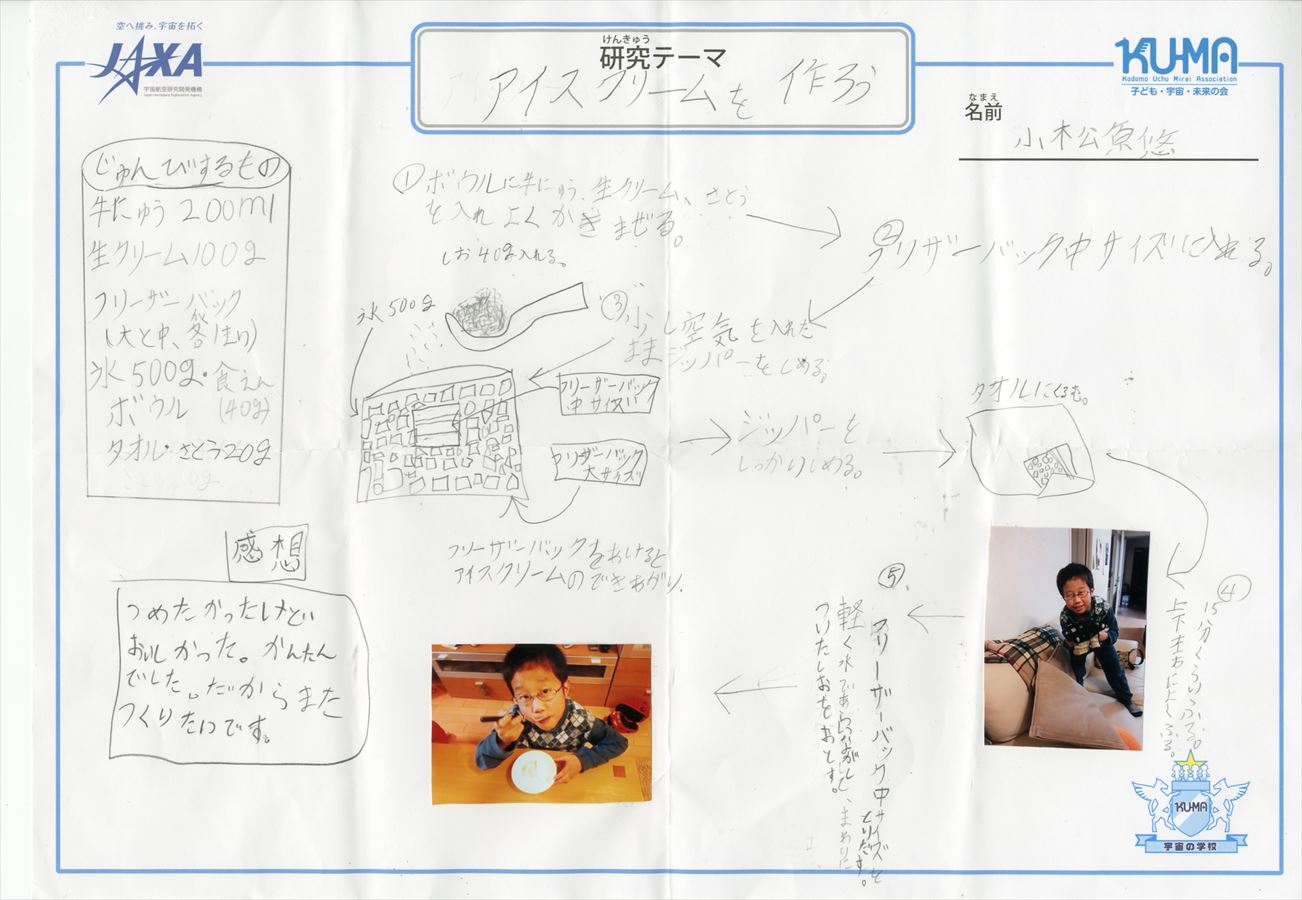 空へ挑み、宇宙を拓く
JAXA
宇宙航空研究開発機構
Japan Aerospace Exploration Agency
けんきゅう
研究テーマ
アイスクリームを作ろう
KU-MA
Kodomo Uchu Mirai Association
子ども・宇宙・未来の会
なまえ
名前
小松原悠
じゅんびするもの
牛にゅう 200ml
生クリーム100g
フリーザーバック
(大と中、各1まい)
氷500g・食えん
ボウル (40g)
タオル・さとう20g
①ボウルに牛にゅう、生クリーム、さとう
を入れよくかきまぜる。
②フリザーバック中サイズに入れる。
③少し空気を入れた
ままジッパーをしめる。
しお40g入れる。
氷500g
フリーザーバック
中サイズ
フリーザーバック
大サイズ
ジッパーを
しっかりしめる。
タオルにくるむ。
④
15分くらいふる。
上下まちがえしふる。
⑤
フリーザーバック中サイズを
とりだす。
軽く水であらいながし、まわりに
ついたしおをおとす。
フリーザーバックをあけると
アイスクリームのできあがり.
感想
つめたかったけどい
おいしかった。かんたん
でした。だからまた
つくりたいです。
KU-MA
宇宙の学校